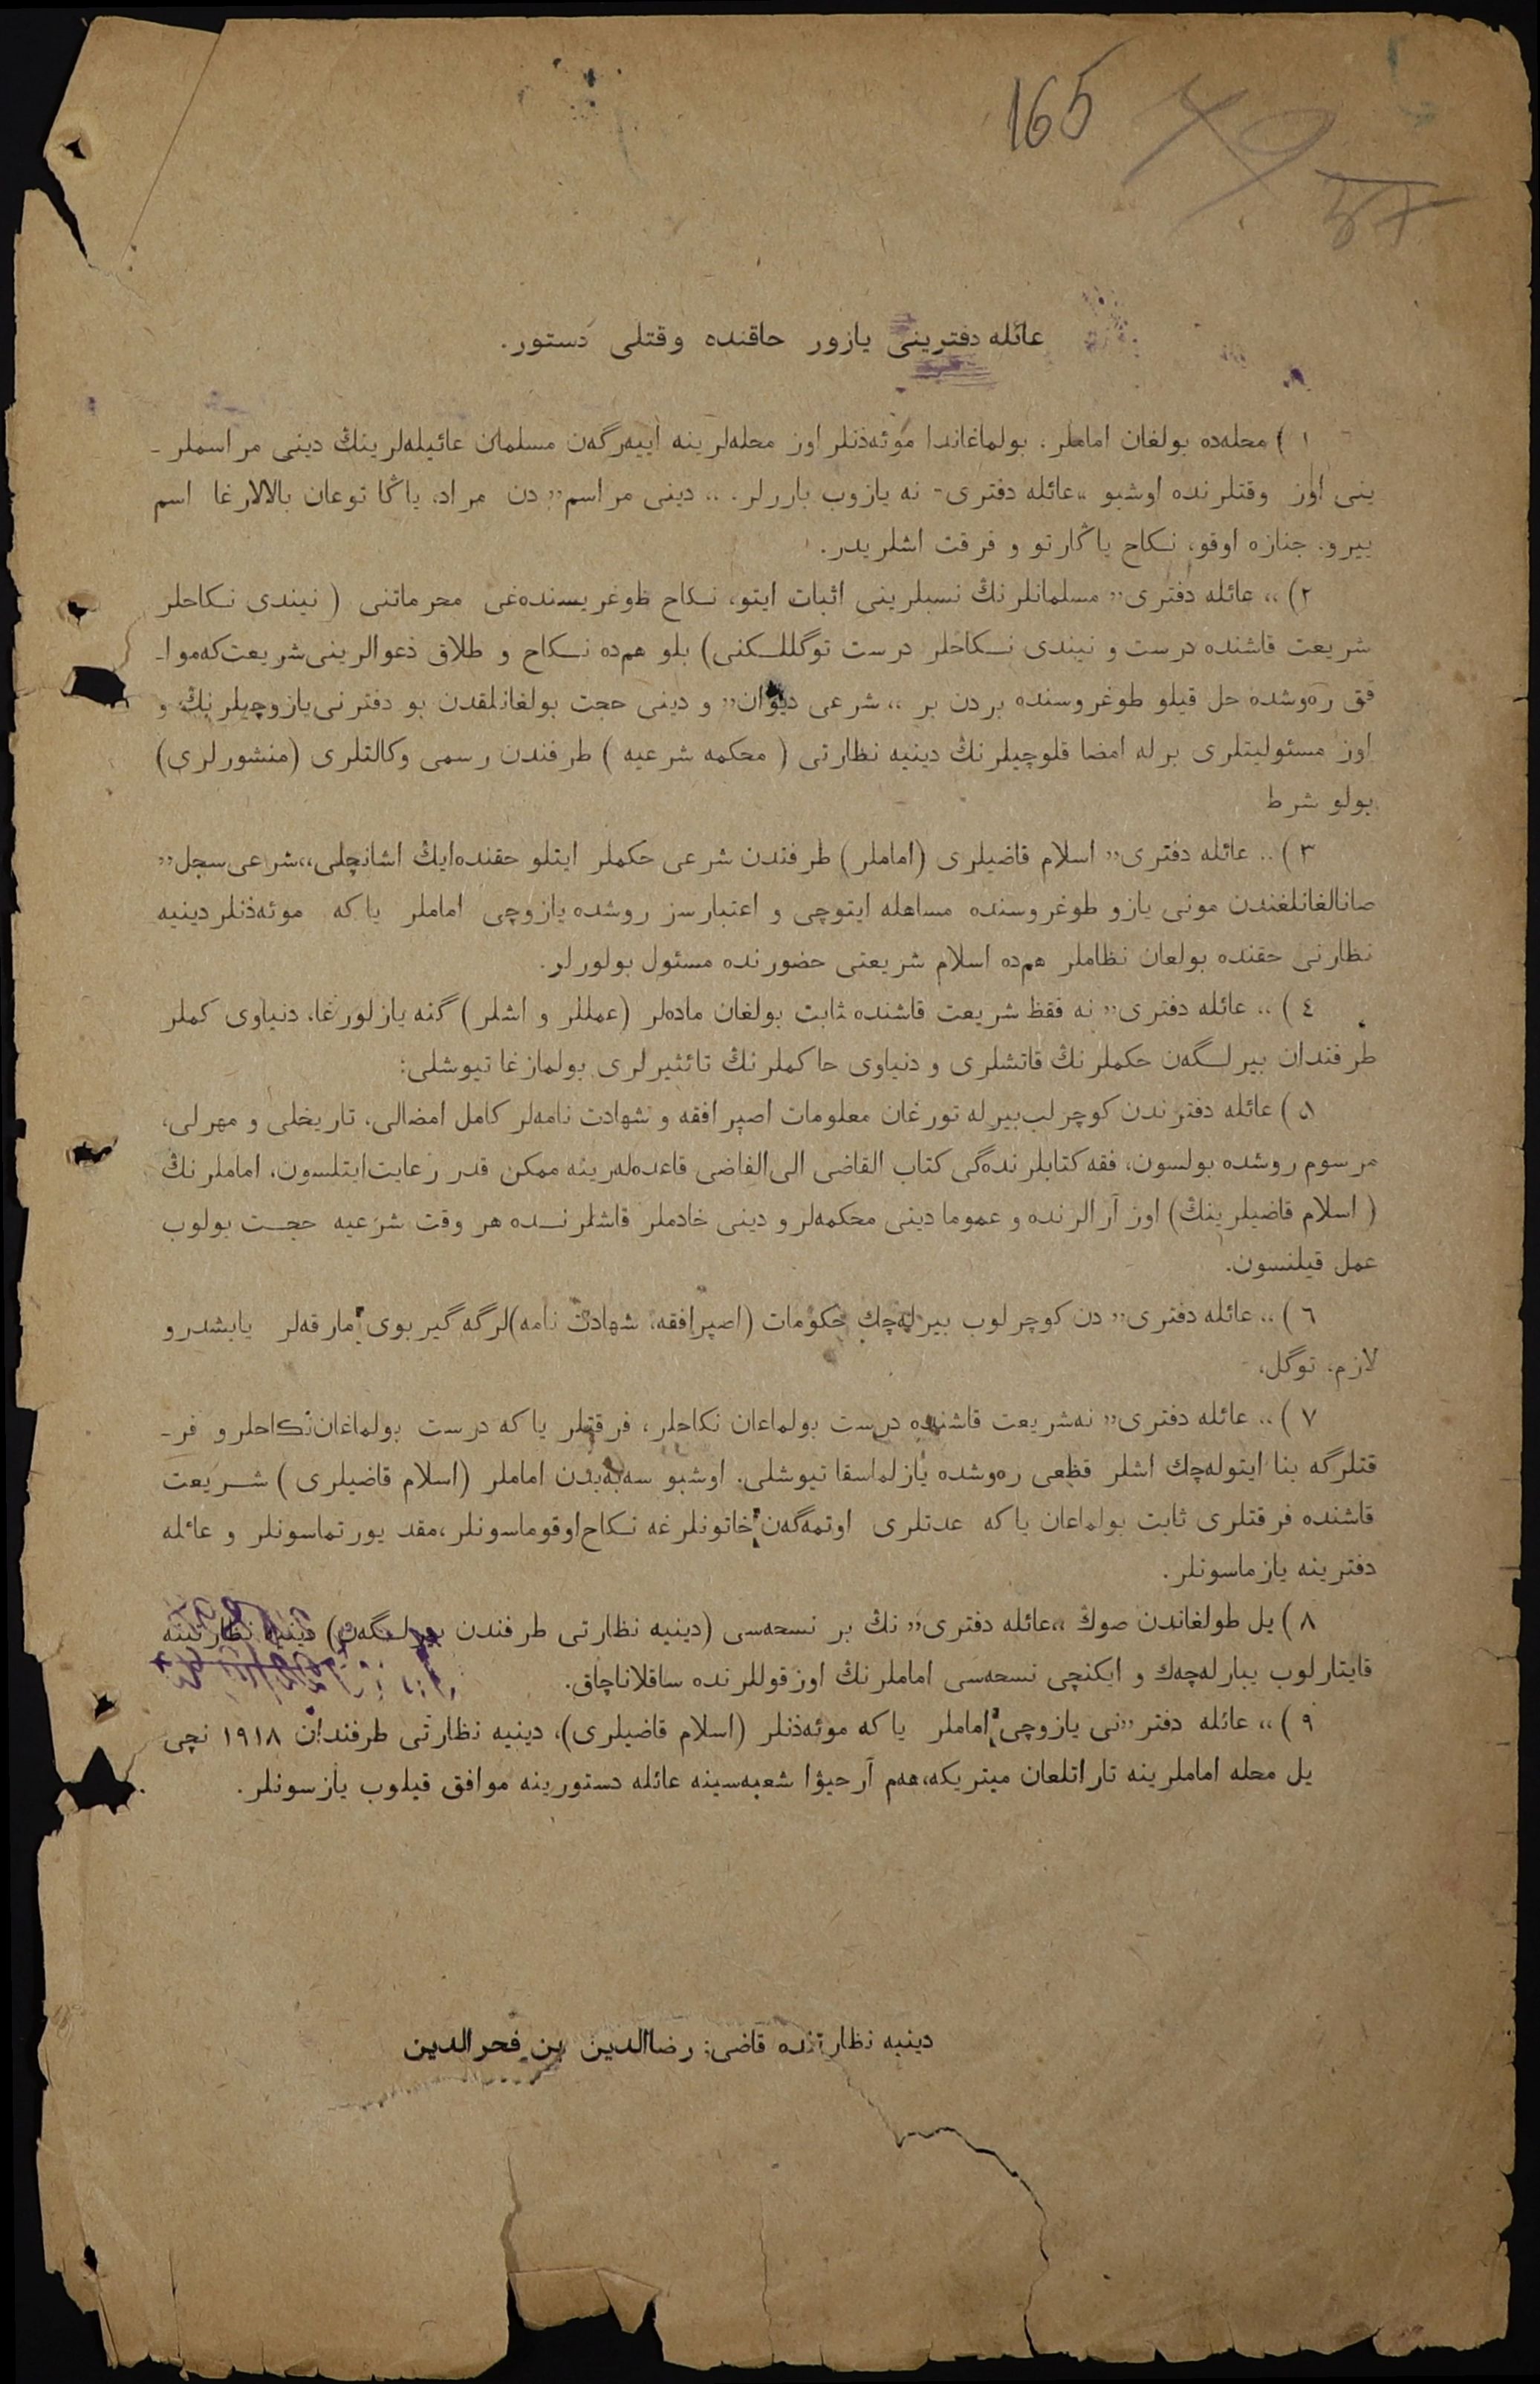 165
عائله دفترینی یازور حاقنده وقتلی دستور.
١ ) محله‌ده بولغان اماملر، بولماغاندا موئه‌ذنلر اوز محله‌لرینه اییه‌رگه‌ن مسلمان عائیله‌لرینڭ دینی مراسملر ـ
ینی اوز وقتلرنده اوشبو „عائله دفتری- نه یازوب باررلر. „ دینی مراسم” دن مراد، یاڭا توعان بالالارغا اسم
بیرو. جنازه اوقو، نكاح یاڭارتو و فرقت اشلریدر.
٢) „ عائله دفتری” مسلمانلرنڭ نسبلرینی اثبات ایتو، نكاح طوغریسنده‌غی محرماتنی ( نیندی نكاحلر
شریعت قاشنده درست و نیندی نكاحلر درست توگللكنی) بلو هم‌ده نكاح و طلاق دعوالرینی شریعت‌که موا ـ
فق ره‌وشده حل قیلو طوغروسنده بردن بر „ شرعی دیوان” و دینی حجت بولغانلقدن بو دفترنی یازوچیلرنڭ و
اوز مسئولیتلری برله امضا قلوچیلرنڭ دینیه نظارتی ( محکمه شرعیه ) طرفندن رسمی وکالتلری (منشورلری)
بولو شرط
٣ ) „ عائله دفتری” اسلام قاضیلری (اماملر) طرفندن شرعی حکملر ایتلو حقنده ایڭ اشانچلی „شرعی سجل”
صانالغانلغندن مونی یازو طوغروسنده مساهله ایتوچی و اعتبارسز روشده یازوچی اماملر یا که موئه‌ذنلر دینیه
نظارتی حقنده بولعان نظاملر هم‌ده اسلام شریعتی حضورنده مسئول بولورلر.
٤ ) „ عائله دفتری” نه فقط شریعت قاشنده ثابت بولغان ماده‌لر (عمللر و اشلر) گنه یازلورغا، دنیاوی کملر
طرفندان بیرلگه‌ن حکملرنڭ قاتشلری و دنیاوی حاکملرنڭ تائثیرلری بولمازغا تیوشلی:
٥ ) عائله دفترندن کوچرلب بیرله تورغان معلومات اصپرافقه و شهادت نامه‌لر کامل امضالی، تاریخلی و مهرلی،
مرسوم روشده بولسون، فقه کتابلرنده‌گی کتاب القاضی الی القاضی قاعده‌له‌رینه ممکن قدر رعایت ایتلسون، اماملرنڭ
( اسلام قاضیلرینڭ) اوز آرالرنده و عموما دینی محکمه‌لر و دینی خادملر قاشلرنده هر وقت شرعیه حجت بولوب
عمل قیلنسون.
٦ ) „ عائله دفتری” دن کوچرلوب بیرله‌چك حکومات (اصپرافقه، شهادت نامه)لرگه گیربوی مارقه‌لر یابشدرو
لازم، توگل،
٧ ) „ عائله دفتری” نه شریعت قاشنده درست بولماعان نکاحلر، فرقتلر یا که درست بولماغان نکاحلر و فر ـ
قتلرگه بنا ایتوله‌چك اشلر قطعی ره‌وشده یازلماسقا تیوشلی. اوشبو سه‌به‌بدن اماملر (اسلام قاضیلری ) شریعت
قاشنده فرقتلری ثابت بولماعان یا که عدتلری اوتمه‌گه‌ن خاتونلرغه نكاح اوقوماسونلر، مقد یورتماسونلر و عائله
دفترینه یازماسونلر.
٨ ) یل طولغاندن صوڭ „عائله دفتری” نڭ بر نسحه‌سی (دینیه نظارتی طرفندن بیرلگه‌ن) دینیه نظارتینه
قایتارلوب یبارله‌چه‌ك و ایکنچی نسحه‌سی اماملرنڭ اوز قوللرنده ساقلاناچاق.
٩ ) „ عائله دفتر ”نی یازوچی اماملر یا که موئه‌ذنلر (اسلام قاضیلری)، دینیه نظارتی طرفندان ١٩١٨ نچی
یل محله اماملرینه تاراتلعان میتریکه، هه‌م آرحیوٚا شعبه‌سینه عائله دستورینه موافق قیلوب یازسونلر.
دینیه نظارتنده قاضی: رضاالدین بن فحرالدین